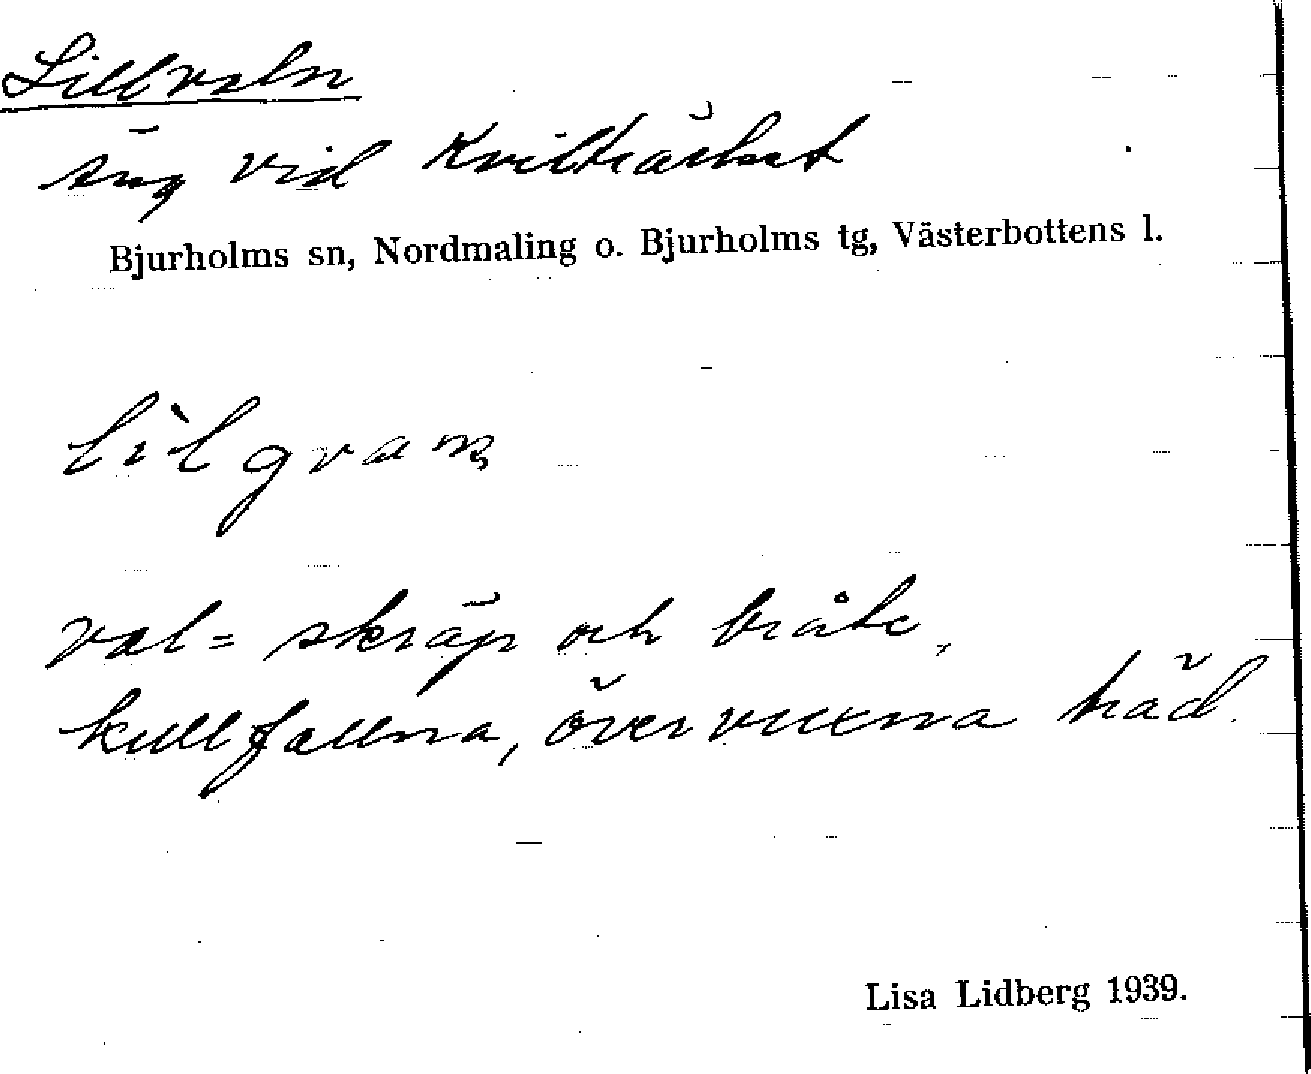 Lillvaln
äng vid Kvitträsket
Bjurholms sn, Nordmaling o. Bjurholms tg, Västerbottens l.
val = skräp och bråte,
kullfallna, övervuxna träd.
Lisa Lidberg 1939.